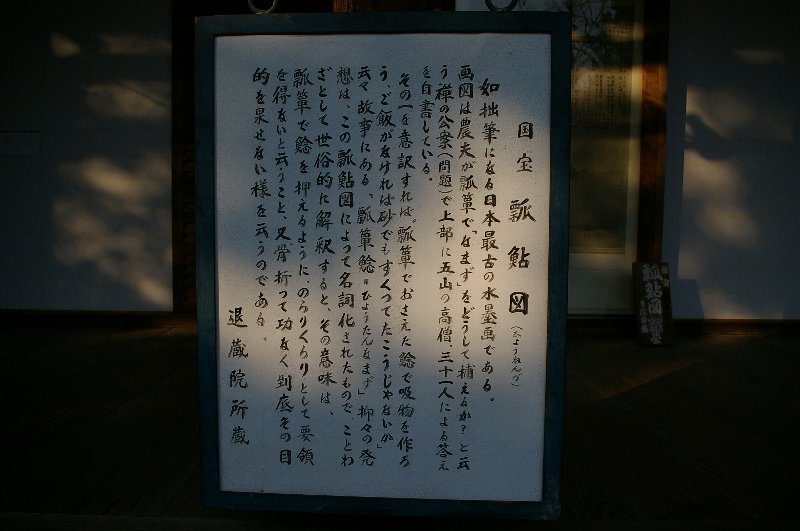 国宝 瓢鮎図(ひょうねんづ)
如拙筆になる日本最古の水墨画である。
画図は農夫が瓢箪で、なまず」をどうして捕えるか?と云
う禅の公案(問題)で上部に五山の高僧、三十一人による答え
を自書している。
その一を意訳すれば"瓢箪でおさえた鯰で吸物を作ろ
う、ご飯がなければ砂でもすくってたこうじゃないか"
云々故事にある「瓢箪鯰=ひょうたんなまず」抑々の発
想は、この瓢鮎図によって名詞化されたもので、ことわ
ざとして世俗的に解釈すると、その意味は、
瓢箪で鯰を押えるように、のらりくらりとして要領
を得ないと云うこと、又骨折って功なく到底その目
的を果せない様を云うのである。
退蔵院所蔵
瓢鮎図